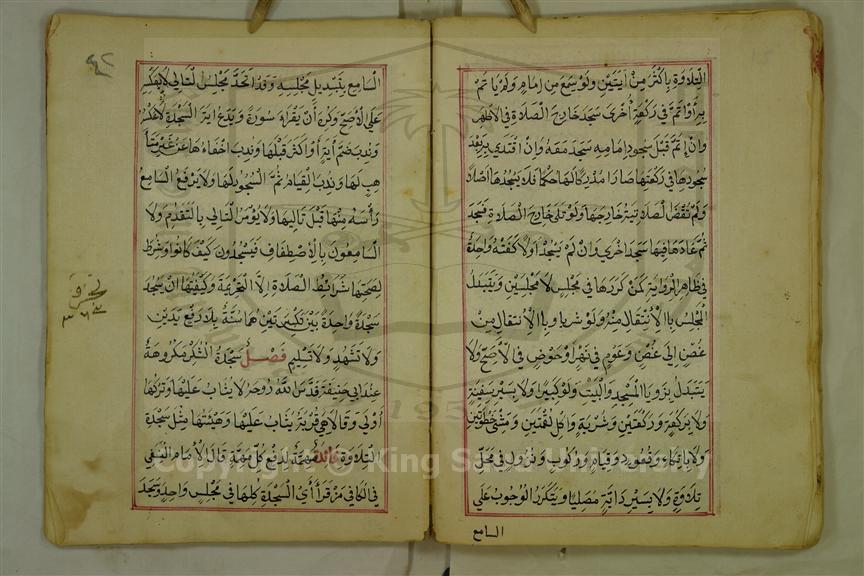 التلاوة باكثر من ايتين ولو سمع من امام ولم ياتم
به او اتم في ركعة اخرى سجد خارج الصلاة في الاظهر
وان ائتم قبل سجود امامه سجد معه وان اقتدي به بعد
سجودها في ركعتها صار مدركا لها حكما فلا يسجدها اصلا
ولم تقض الصلاتية خارجها ولو تلي خارج الصلاة فسجد
ثم عاد فيها سجد اخرى وان لم يسجد اولا كفته واحدة
في ظاهر الرواية كمن كررها في مجلس لا مجلسين ويتبدل
المجلس بالانتقال منه ولو مشريا وبالانتقال من
غصن الى غصن وعوم في نهر او حوض في الاصح ولا
يتبدل بزوايا المسجد والبيت ولو كبيرا ولا بسير سفينة
ولا بركعة وركعتين وشربة واكل لقمتين ومشي خطوتين
ولا باتكاء وقعود وقيام وركوب ونزول في محل
تلاوة ولا بسير دابة مصليا ويتكرر الوجوب على
السامع
٤٢
السامع بتبديل مجلسه وقد اتحد مجلس التالي لا بعكسه
على الاصح وكره أن يقراء سورة ويدع اية السجدة لا عكسه
وندب ضم آية أو اكثر قبلها وندب اخفاءها عن غير متأ
هب لها وندب القيام ثم السجود لها ولا يرفع السامع
رأسه منها قبل تاليها ولا يؤمر التالي بالتقدم ولا
السامعون بالاصطفاف فيسجدون كيف كانوا وشرط
لصحتها شرائط الصلاة الا التحريمة وكيفيتها ان يسجد
سجدة واحدة بين تكبيرتين هما سنة بلا رفع يدين
ولا تشهد ولا تسليم فصل سجدة الشكر مكروهة
عند ابي حنيفة قدس الله روحه لا يثاب عليها وتركها
أولى وقالا هي قربة يثاب عليها وهيئتها مثل سجدة
التلاوة فائدة مهمة لدفع كل مهمة قال الامام النسفي
في الكافي من قرأ أي السجدة كلها في مجلس واحد وسجد
Copyright © King Saud University
195